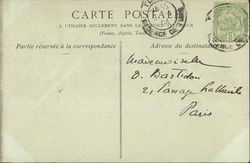 CARTE POSTALE
A UTILISER SEULEMENT DANS LE
(France, Algérie,
Partie réservée à la correspondance
Adresse du destinataire
Mademoiselle
D. Bastidon
21, Passage
Paris